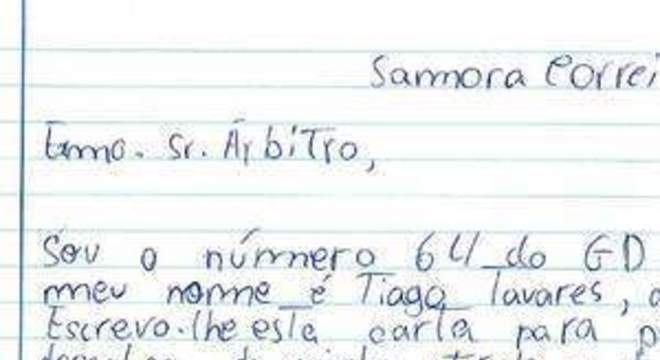 Samora Correi
Exmo. Sr. Árbitro,
Sou o número 64 do GD
meu nome é Tiago Tavares,
Escrevo-lhe esta carta para p